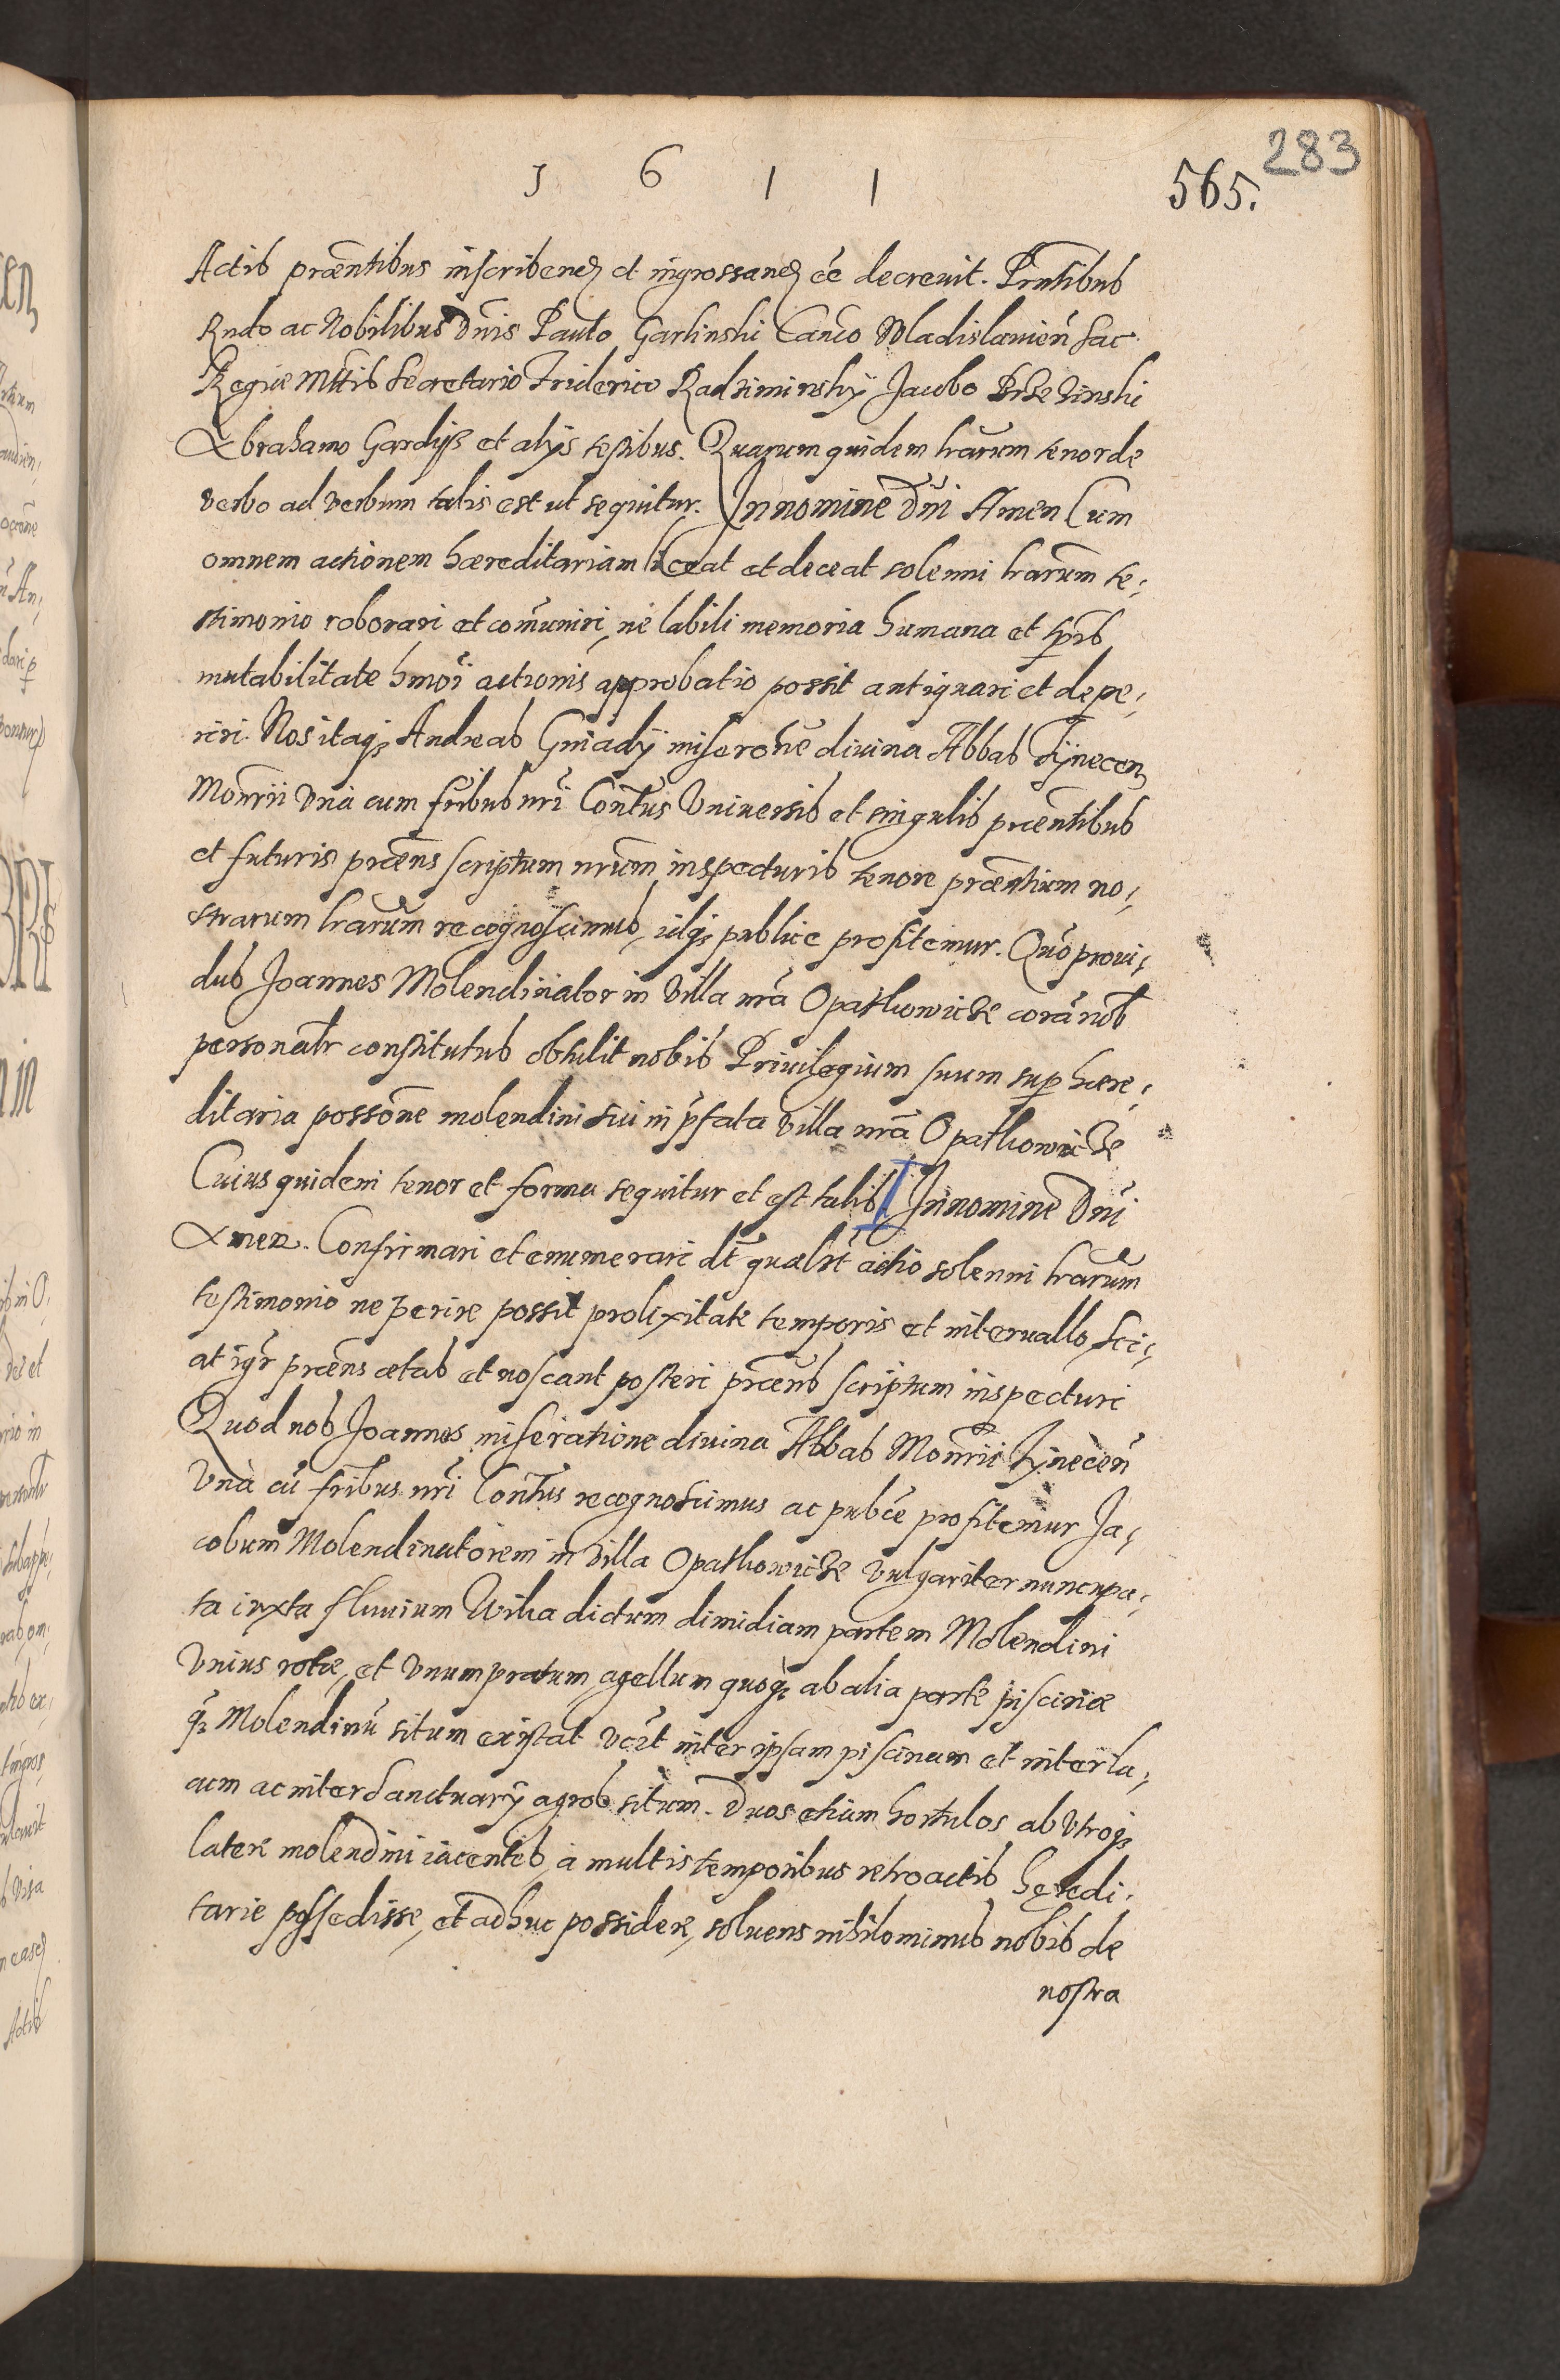 1 6 1 1
565.
283
Actis præntibus inscribend et ingrossand ee decrevit. Prntibus
Rndo ac Nobilibus Dnis Paulo Garlinski Canco Wladislavien Sac
Regiæ Mttis Secretario Friderico Radziminskÿ Jacobo
Abrahamo Gardÿß et alÿs testibus. Quarum quidem lrarum tenor de
verbo ad verbum talis est ut sequitur. In nomine Dni Amen Cum
omnem actionem hæreditariam liceat et deceat solenni lrarum te,
stimonio roborari et comuniri, ne labili memoria humana et tpris
mutabilitate hmoi actionis approbatio possit antiquari et depe,
riri. Nos itaq Andreas Gniadÿ miseraone divina Abbas Tÿnecen
Monrii Una cum fribus nri Contus Universis et singulis præntibus
et futuris præns scriptum nrum inspecturis tenore præntium no,
strarum lrarum recognoscimus, idq publice profitemur. Quo provi,
dus Joannes Molendinator in Villa nra Opatkowicze cora nob
personalr constitutus obtulit nobis Privilegium suum sup hære,
ditaria possone molendini sui in pfata Villa nra Opatkowicze
Cuius quidem tenor et forma sequitur et est talis In nomine Dni
Amen. Confirmari et enumerari dt quælbt actio solenni lrarum
testimonio ne perire possit prolixitate temporis et intervallo, Sci,
at igr præns ætas et noscant posteri præns scriptum inspecturi
Quod nos Joannes miseratione divina Abbas Monrii Tÿnecen
Una cu fribus nri Contus recognoscimus ac pubce profitemur Ja,
cobum Molendinatorem in Villa Opatkowicze vulgariter nuncupa,
ta iuxta fluvium Wilga dictum dimidiam partem Molendini
Unius rotæ, et Unum pratum, agellum quoq ab alia parte piscinæ
q Molendinu situm existat inter ipsam piscinam et inter la,
cum ac inter Sanctuarÿ agros situm. Duos etiam hortulos ab Utroq
latere molendini iacentes, a multis temporibus retroactis heredi,
tarie possedisse, et adhuc possidere, solvens nihilominus nobis de
nostra